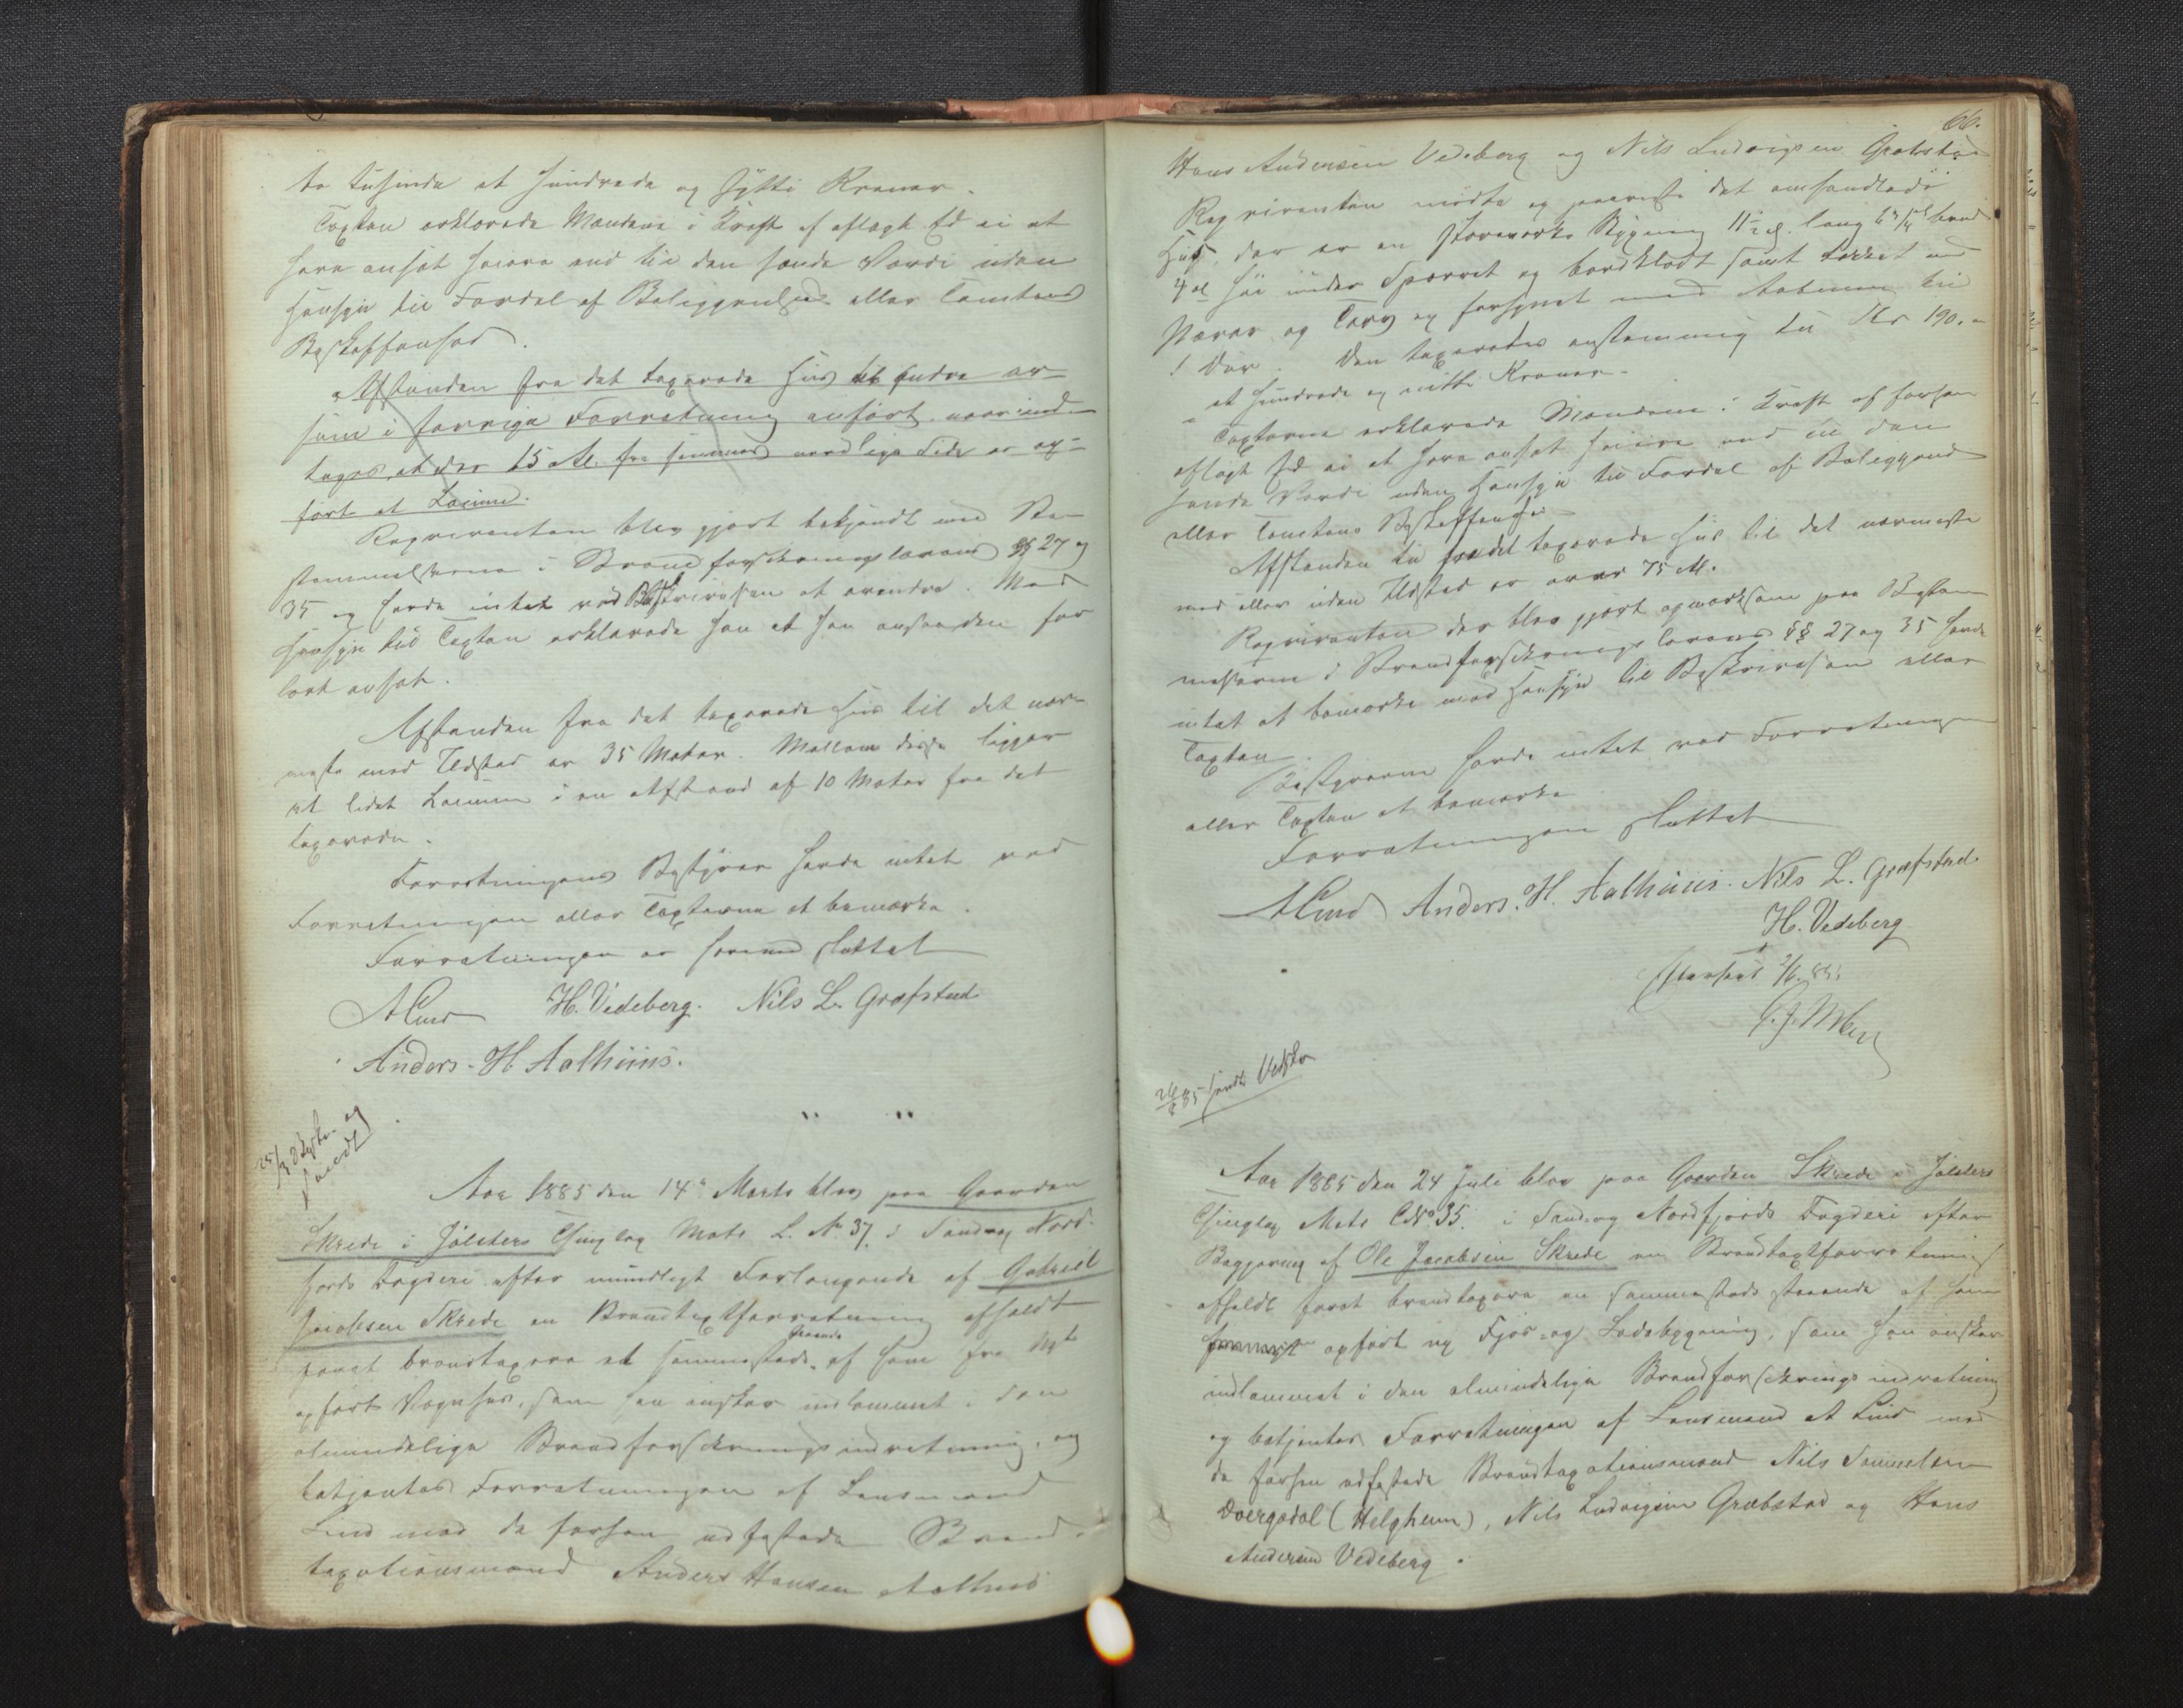 to tusinde et hundrede og sytti Kroner.
Taxten erklærede Mændene i Kraft af aflagt Ed ei at
have ansat høiere end til den sande Værdi uden
Hensyn til Fordel af Beliggenhed eller Tomtens
Beskaffenhed.
Afstanden fra det taxerede Hus til andre er
som i forrige Forretning anført naar und-
tages at der 15 M. fra sammes nordlige Side er op-
ført et Kvernhus.
Reqvirenten blev gjort bekjendt med Be-
stemmelserne i Brandforsikringslovens §§ 27 og
35 og havde intet ved Beskrivelsen at erindre. Med
Hensyn til Taxten erklærede han at han ansaa den for
lavt ansat.
Afstanden fra det taxerede Hus til det nær-
meste med Ildsted er 35 Meter. Mellem disse ligger
et lidet i en Afstand af 10 Meter fra det
taxerede.
Forretningens Bestyrer havde intet ved
Forretningen eller Taxterne at bemærke.
Forretningen er hermed sluttet
A Lind H. Vedeberg. Nils L. Græfstad
Anders. H. Aalhuus.
25/3 85 og
sendt
Aar 1885 den 14de Marts blev paa Gaarden
Skrede i Jølsters Thinglag Matr. L. No 37. i Sønd og Nord-
fjords Fogderi efter mundligt Forlangende af Gabriel
Jacobsen Skrede en Brandtaxtforretning afholdt
staaende
forat brandtaxere et sammesteds af ham fra Nyt
opført Vognhus, som han ønsker indlemmet i den
almindelige Brandforsikringsindretning, og
betjentes Forretningen af Lensmand
Lind med de forhen udfæstede Brand-
taxationsmænd Anders Hansen Aalhus
66.
Hans Andersen Vedeberg og Nils Ludvigsen Græbstad
Reqvirenten mødte og paaviste det omhandlede
Hus, der er en Stavværks Bygning 11 1/2 al. lang 6 1/4 al bred
4 al høi under Sparret og bordklædt samt tækket med
Næver og Torv og forsynet med Aabning til
1 Dør. Den taxeredes enstemmig til Kr 190.-
- et hundrede og nitti Kroner -
Taxterne erklærede Mændene i Kraft af forhen
aflagt Ed ei at have ansat høiere end til den
sande Værdi uden Hensyn til Fordel af Beliggenhed
eller Tomtens Beskaffenhed
Afstanden fra det taxerede Hus til det nærmeste
med eller uden Ildsted er over 75 M.
Reqvirenten der blev gjort opmærksom paa Bestem-
melserne i Brandforsikringslovens §§ 27 og 35 havde
intet at bemærke med Hensyn til Beskrivelsen eller
Taxten.
Bestyreren havde intet ved Forretningen
eller Taxten at bemærke
Forretningen sluttet
A Lind Anders. H. Aalhuus. Nils L. Græfstad
H. Vedeberg
Efterseet 2/6 85.
26/3 85 sendt Udskr
Aar 1885 den 24 Juli blev paa Gaarden Skrede i Jølsters
Thinglag Matr L No 35. i Sønd og Nordfjords Fogderi efter
Begjæring af Ole Jacobsen Skrede en Brandtaxtforretning
afholdt forat brandtaxere en sammesteds staaende af ham
opført ny Fjøs- og Ladebygning, som han ønsker
indlemmet i den almindelige Brandforsikringsindretning
og betjentes Forretningen af Lensmand A Lind med
de forhen udfæstede Brandtaxationsmænd Nils Samuelsen
Dvergsdal (Helgheim), Nils Ludvigsen Græbstad og Hans
Andersen Vedeberg.